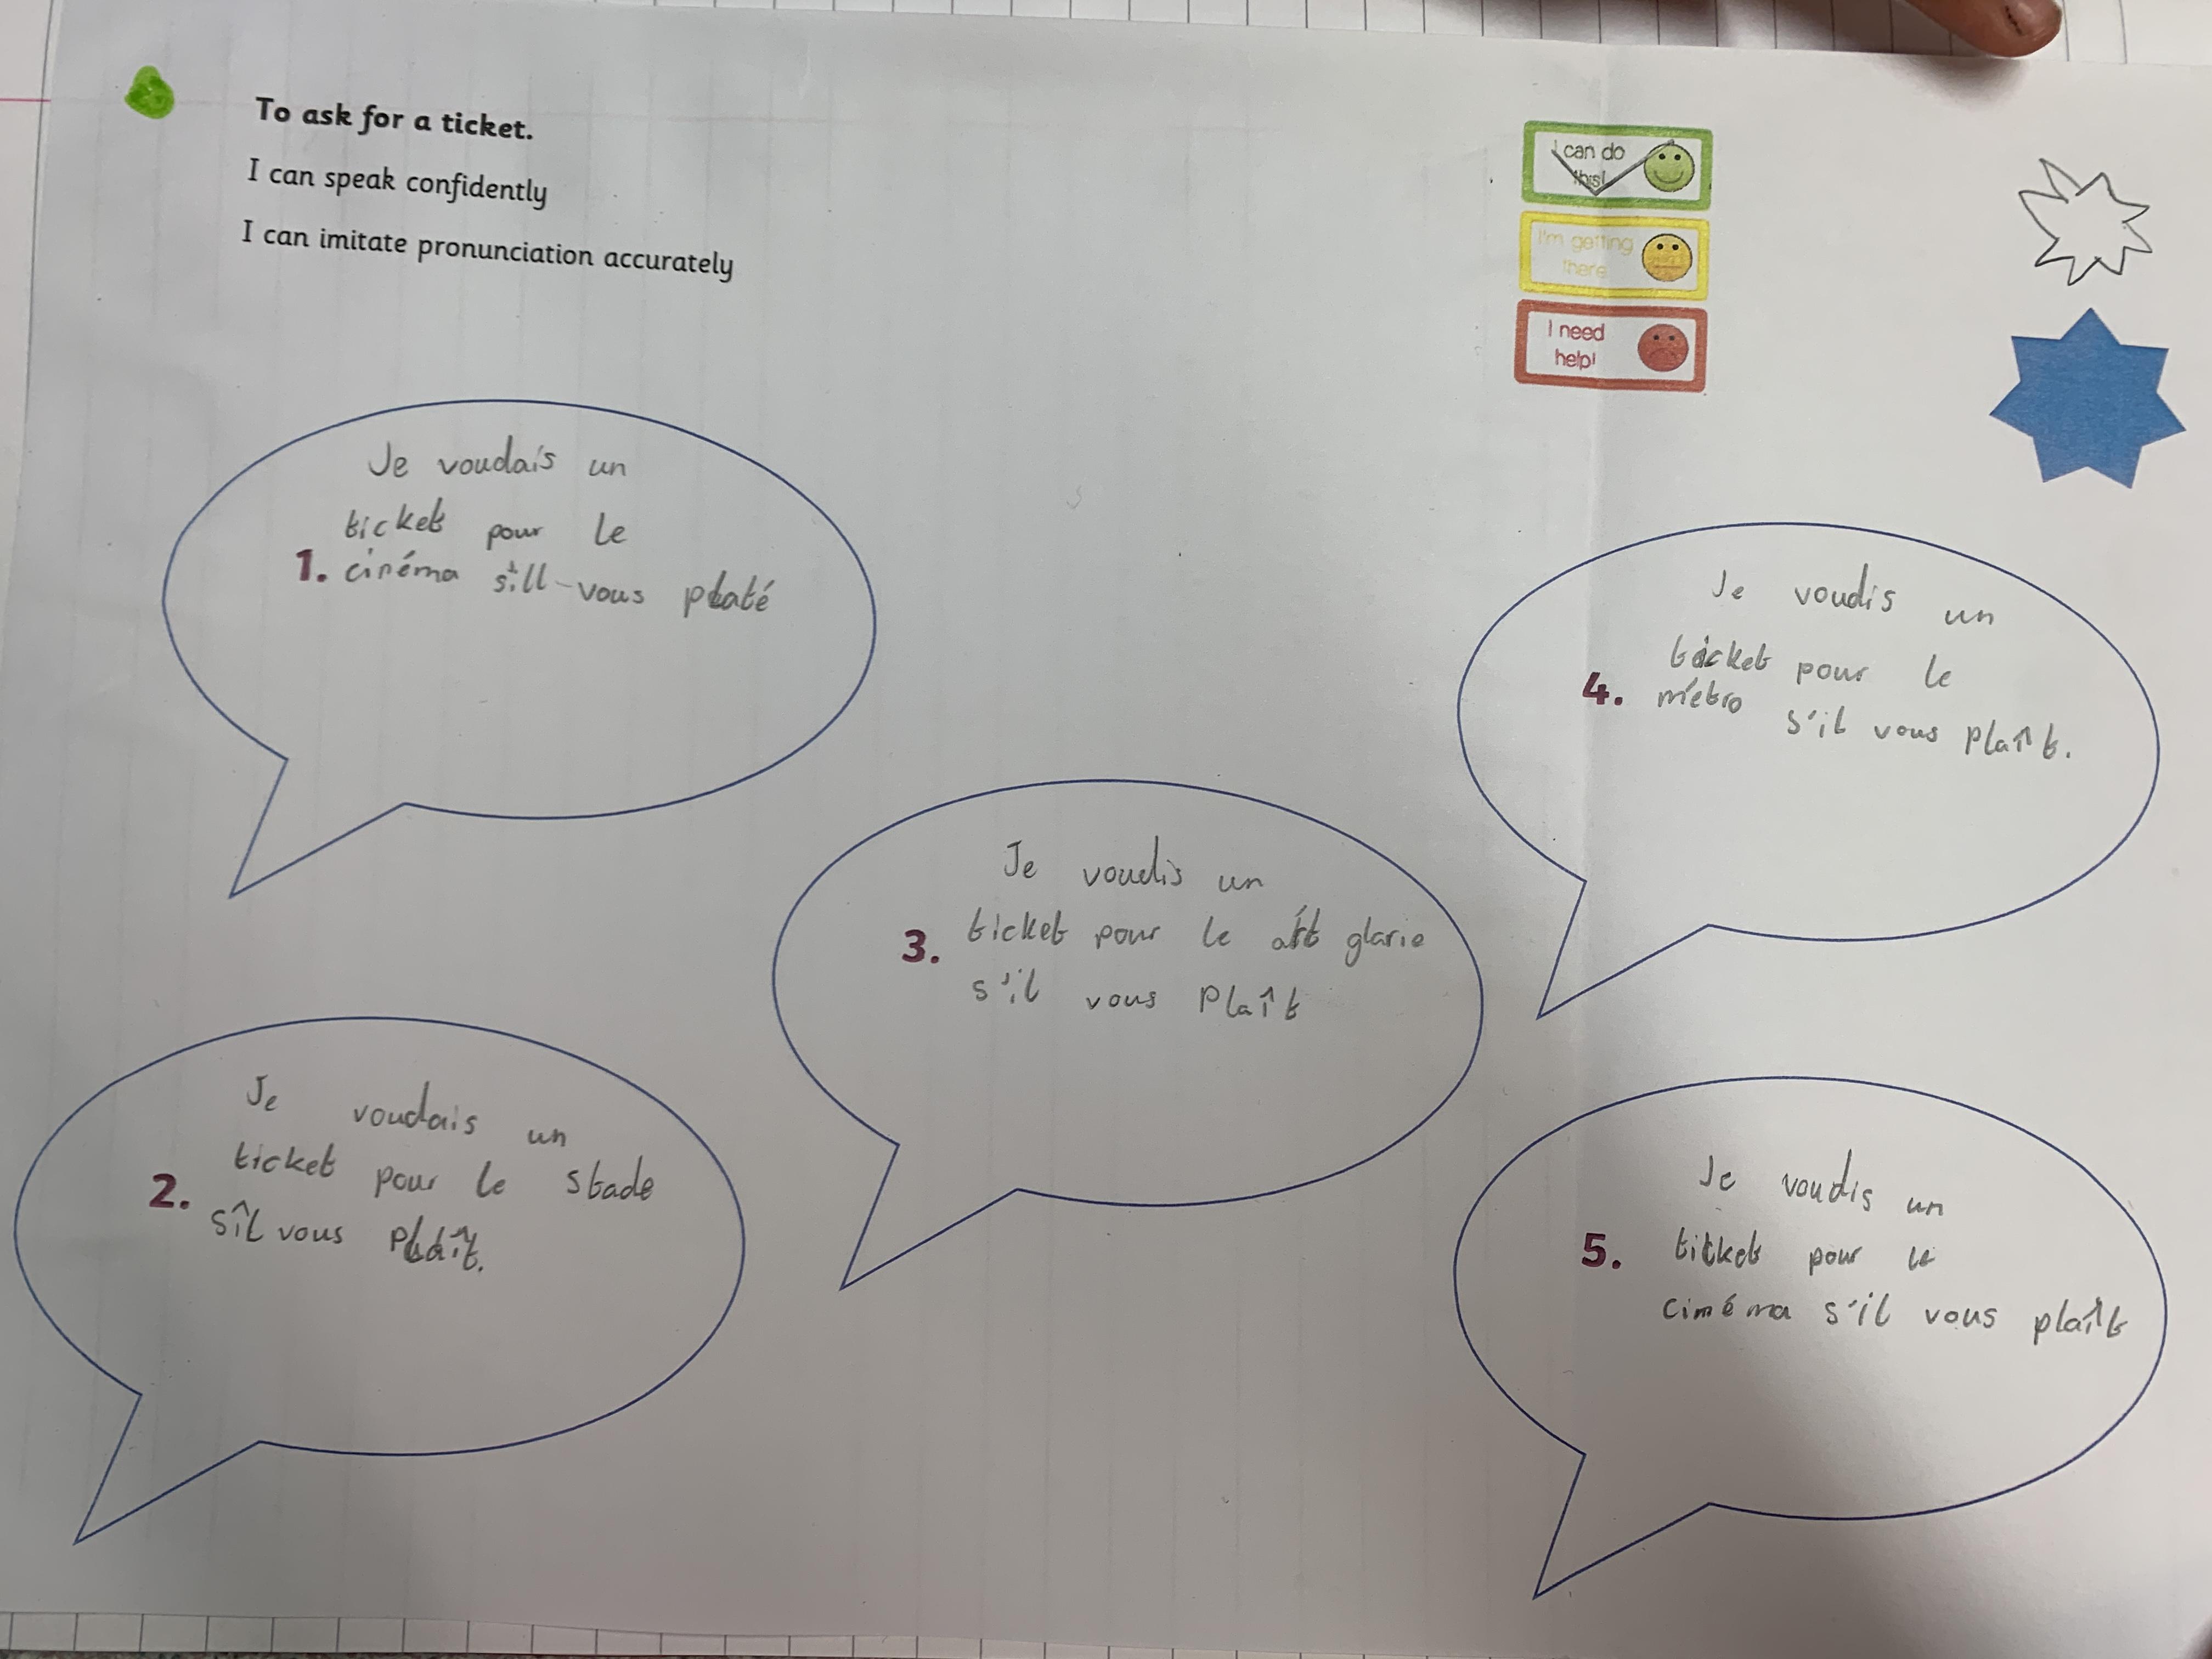 To ask for a ticket.
I can speak confidently
I can imitate pronunciation accurately
I can do
this!
I'm getting
there
I need
help!
Je voudais un
ticket pour le
1. cinéma sill-vous platé
Je voudais un
ticket pour le stade
2. sîl vous plaît.
Je voudis un
3. ticket pour le art glarie
s'il vous Plaît
Je voudis un
ticket pour le
4. métro s'il vous plaît.
Je voudis un
5. ticket pour le
cinéma s'il vous plaît